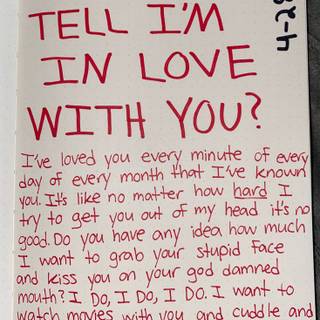 TELL I'M
IN LOVE
WITH YOU?
I've loved you every minute of every
day of every month that I've known
you. It's like no matter how hard I
try to get you out of my head it's no
good. Do you have any idea how much
I want to grab your stupid face
and kiss you on your god damned
mouth? I DO, I DO, I DO. I want to
watch movies with you and cuddle and